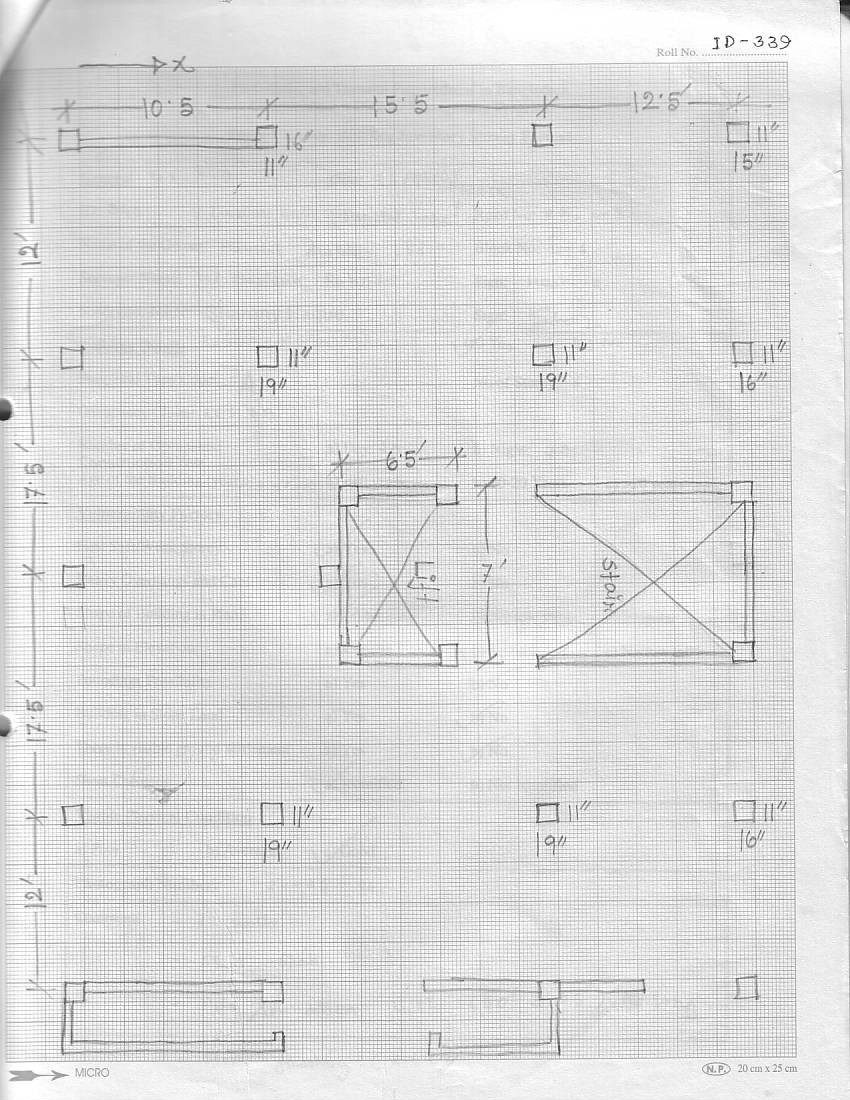 Roll No. ID-339
x
10'5 15'5 12'5'
16"
11"
11"
15"
12'
11"
19"
11"
19"
11"
16"
6'5'
17.5'
Lift
7'
Stair
17.5'
11"
19"
11"
19"
11"
16"
12'
MICRO
N.P. 20 cm x 25 cm